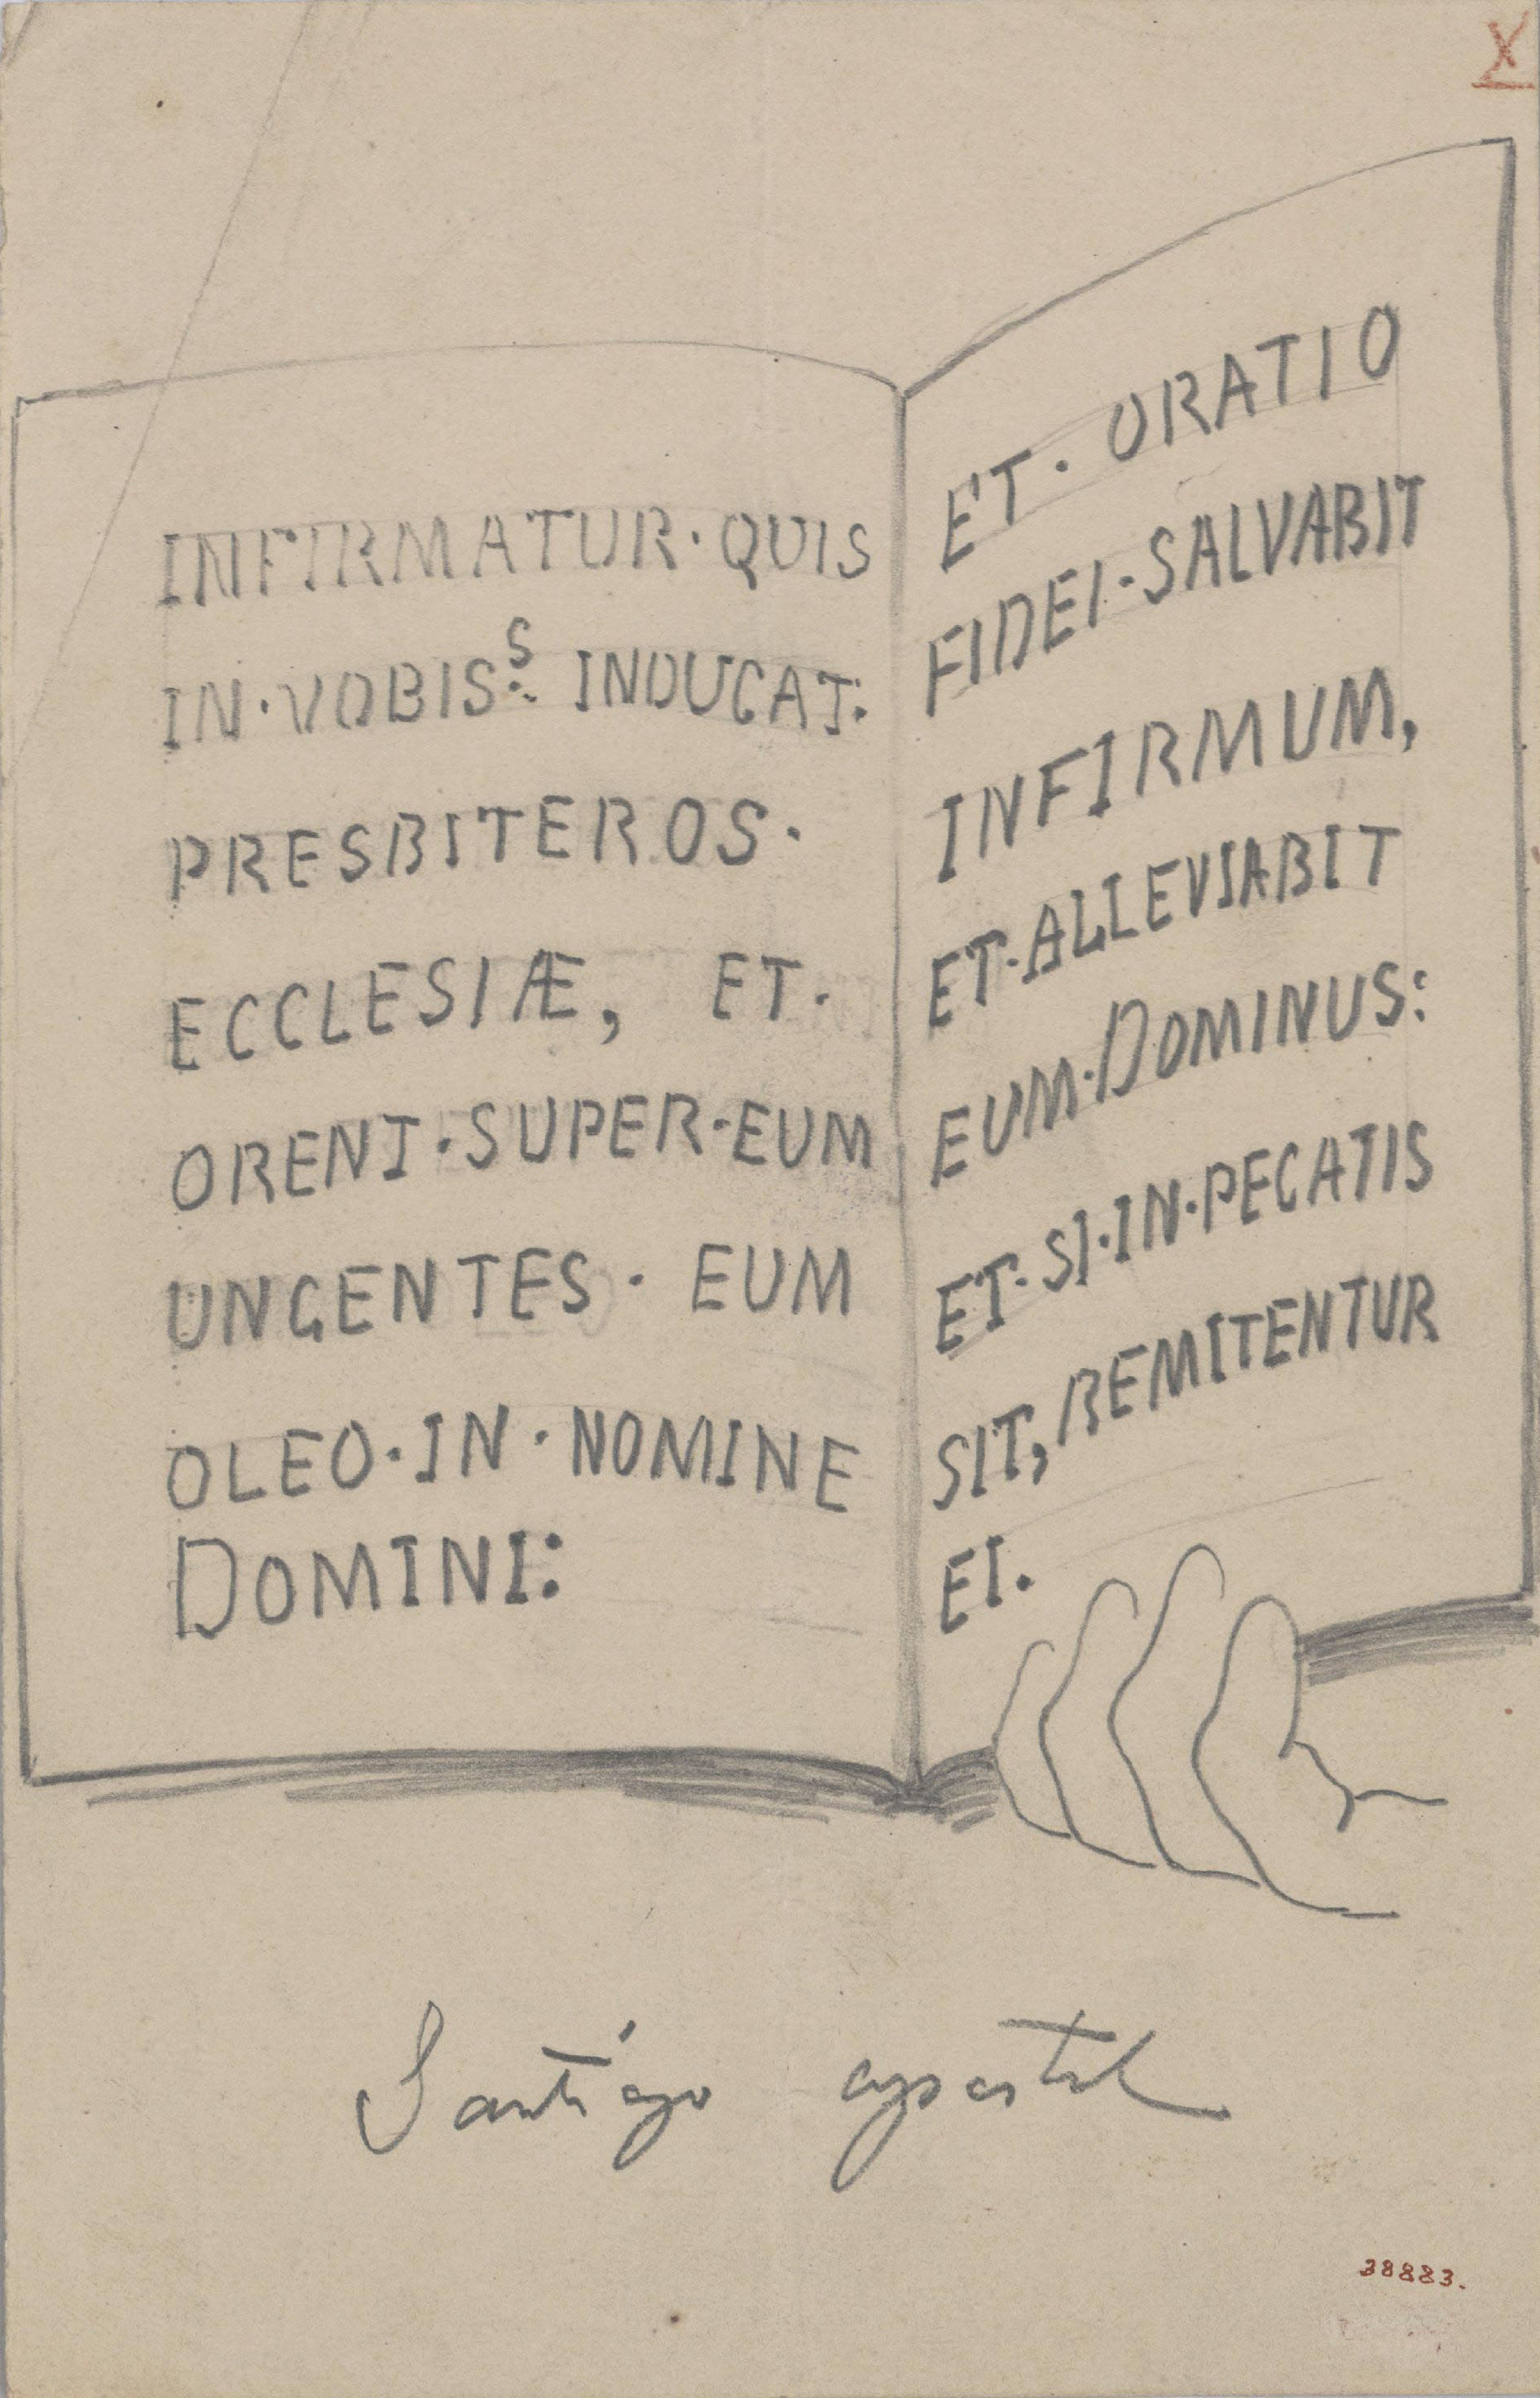 X
INFIRMATUR·QUIS
IN·VOBIS:S INDUCAT:
PRESBITEROS·
ECCLESIÆ, ET·
ORENT·SUPER·EUM
UNGENTES· EUM
OLEO·IN·NOMINE
DOMINI:
ET·ORATIO
FIDEI·SALVABIT
INFIRMUM,
ET·ALLEVIABIT
EUM·DOMINUS:
ET·SI·IN·PECATIS
SIT, REMITENTUR
EI.
Santiago apostol
38883.